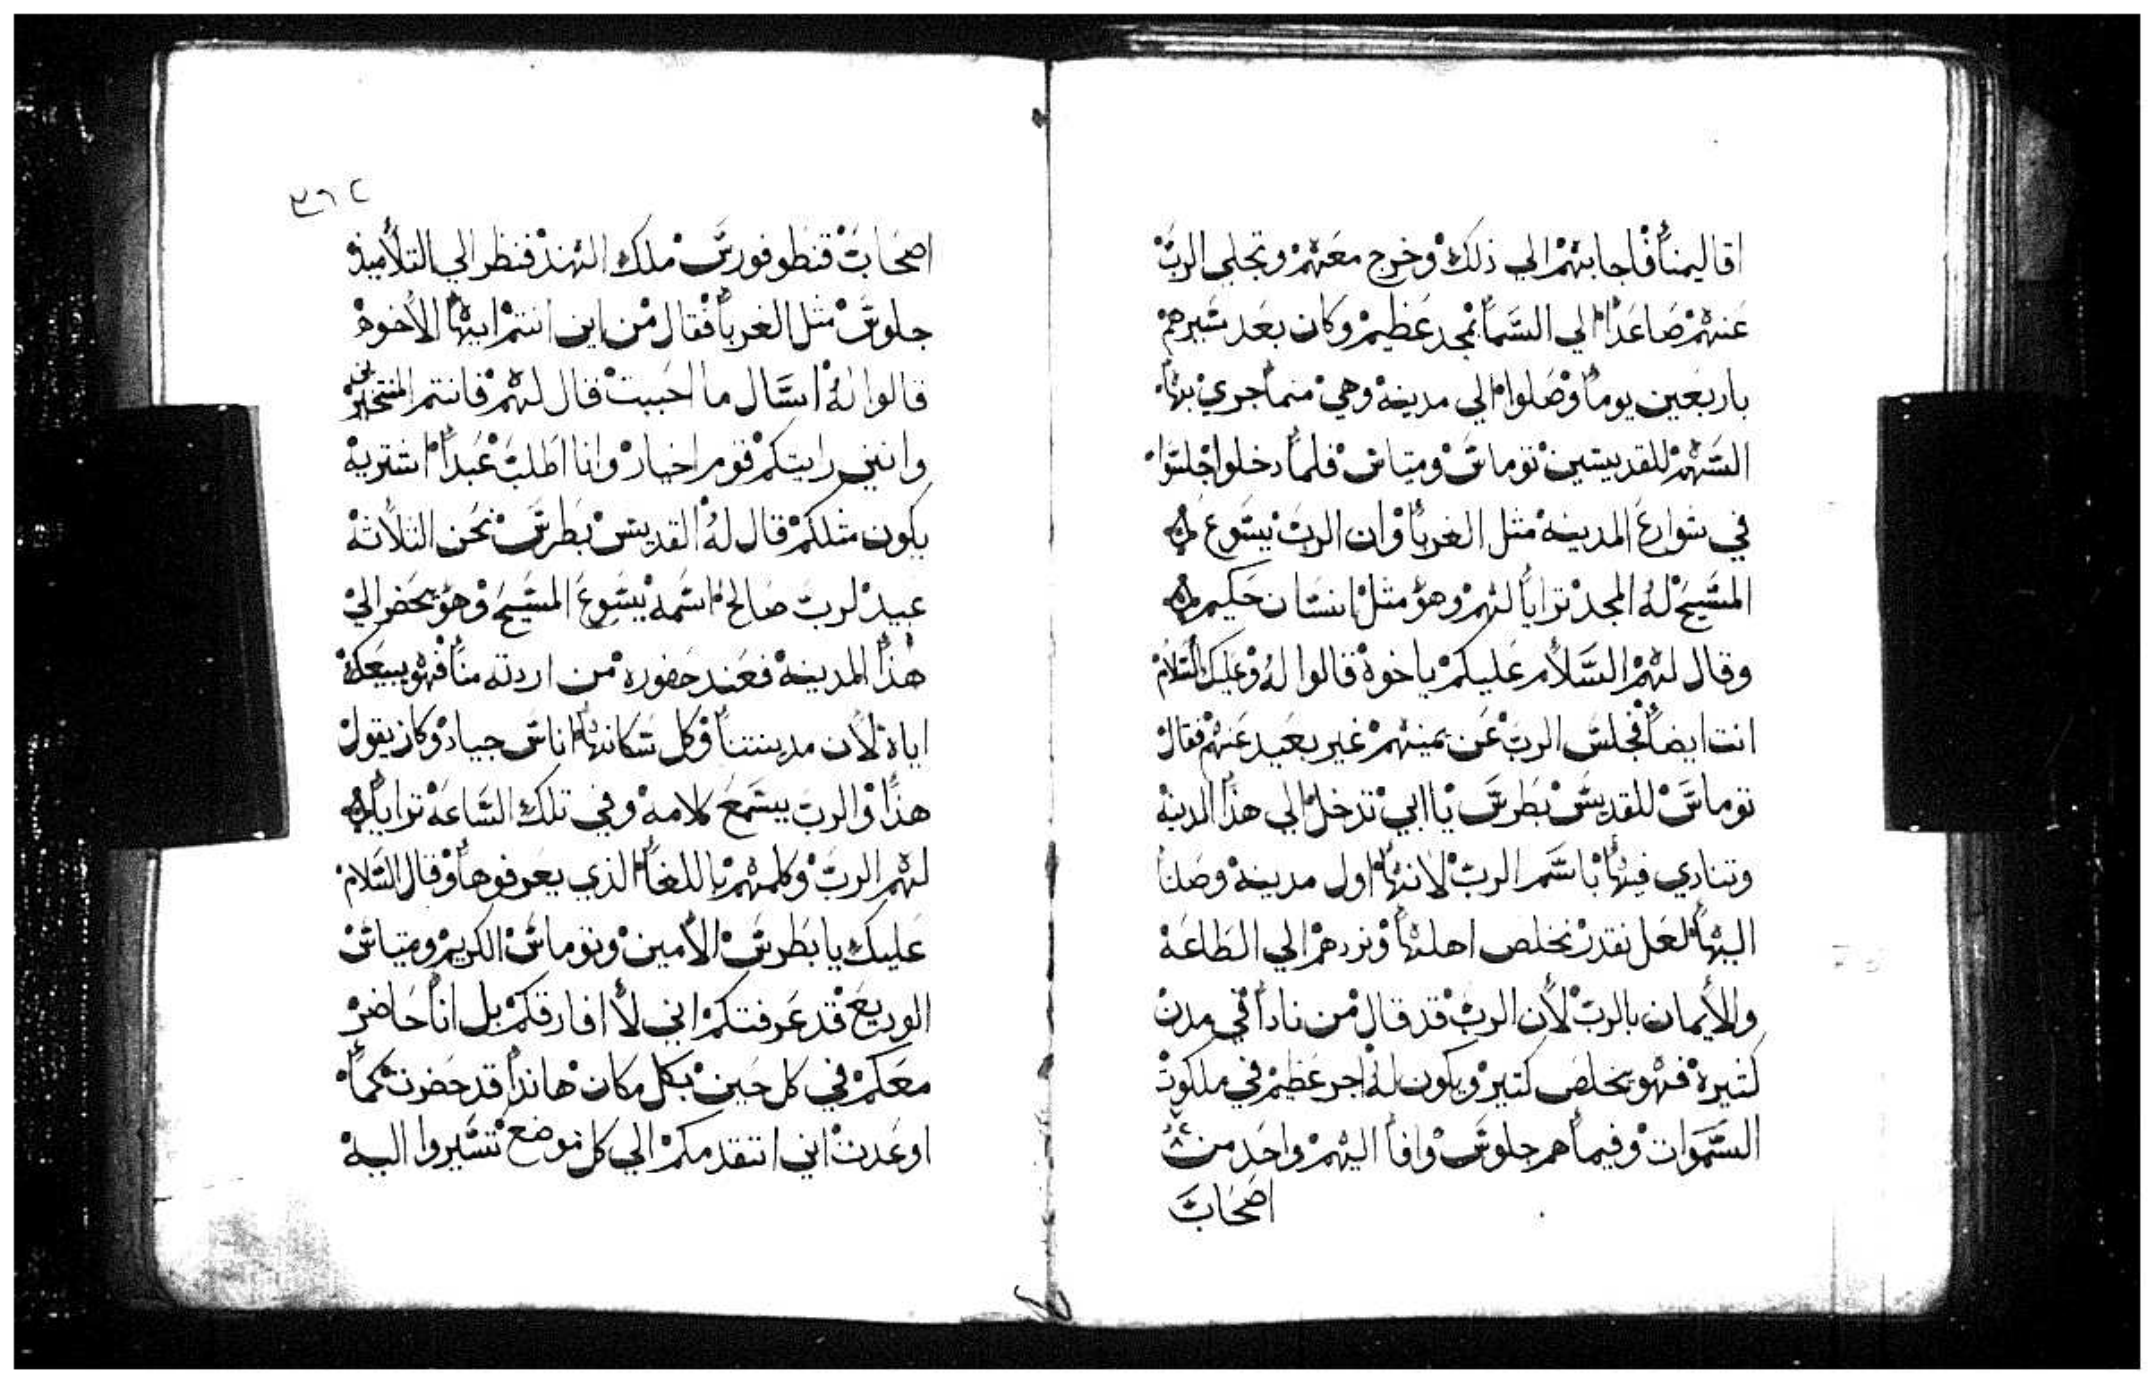 اقاليمنا فاجابتهم الي ذلك وخرج معهم وتجلي الرب
عنهم صاعدا الي السما بمجد عظيم وكان بعد سيرهم
باربعين يوما وصلوا الي مدينه وهي منما جري بها
السهم للقديسين توماس ومتياس فلما دخلوا جلسوا
في شوارع المدينه مثل الغربا وان الرب يسوع
المسيح له المجد ترايا لهم وهو مثل انسان حكيم
وقال لهم السلام عليكم ياخوة قالوا له وعليك السلام
انت ايضا فجلس الرب عن يمينهم غير بعيد عنهم فقال
توماس للقديس بطرس يا ابي تدخل الي هذا المدينه
وتنادي فيها باسم الرب لانها اول مدينه وصلنا
اليها لعل نقدر نخلص اهلها ونردهم الي الطاعه
والايمان بالرب لان الرب قد قال من نادا في مدن
كتيرة فهو يخلص كتير ويكون له اجر عظيم في ملكوت
السموات وفيما هم جلوس وافا اليهم واحد من
اصحاب
٣٦٢
اصحاب قنطوفورس ملك الهند فنظر الي التلاميذ
جلوس مثل الغربا فقال من اين انتم ايها الاخوه
قالوا له اسال ما احببت قال لهم فانتم
وانني رايتكم قوم اخيار وانا اطلب عبدا اشتريه
يكون مثلكم قال له القديس بطرس نحن الثلاثه
عبيد لرب صالح اسمه يسوع المسيح وهو يحضر الي
هذا المدينه فعند حضوره من اردته منا فهو يبيعك
اياه لان مدينتنا وكل سكانها اناس جياد وكان يقول
هذا والرب يسمع كلامه وفي تلك الساعه ترايا
لهم الرب وكلمهم باللغا الذي يعرفوها وقال السلام
عليك يا بطرس الامين وتوماس الكريم ومتياس
الوديع قد عرفتكم اني لا افارقكم بل انا حاضر
معكم في كل حين بكل مكان هانذا قد حضرت كما
اوعدت اني اتقدمكم الي كل موضع تسيروا اليه